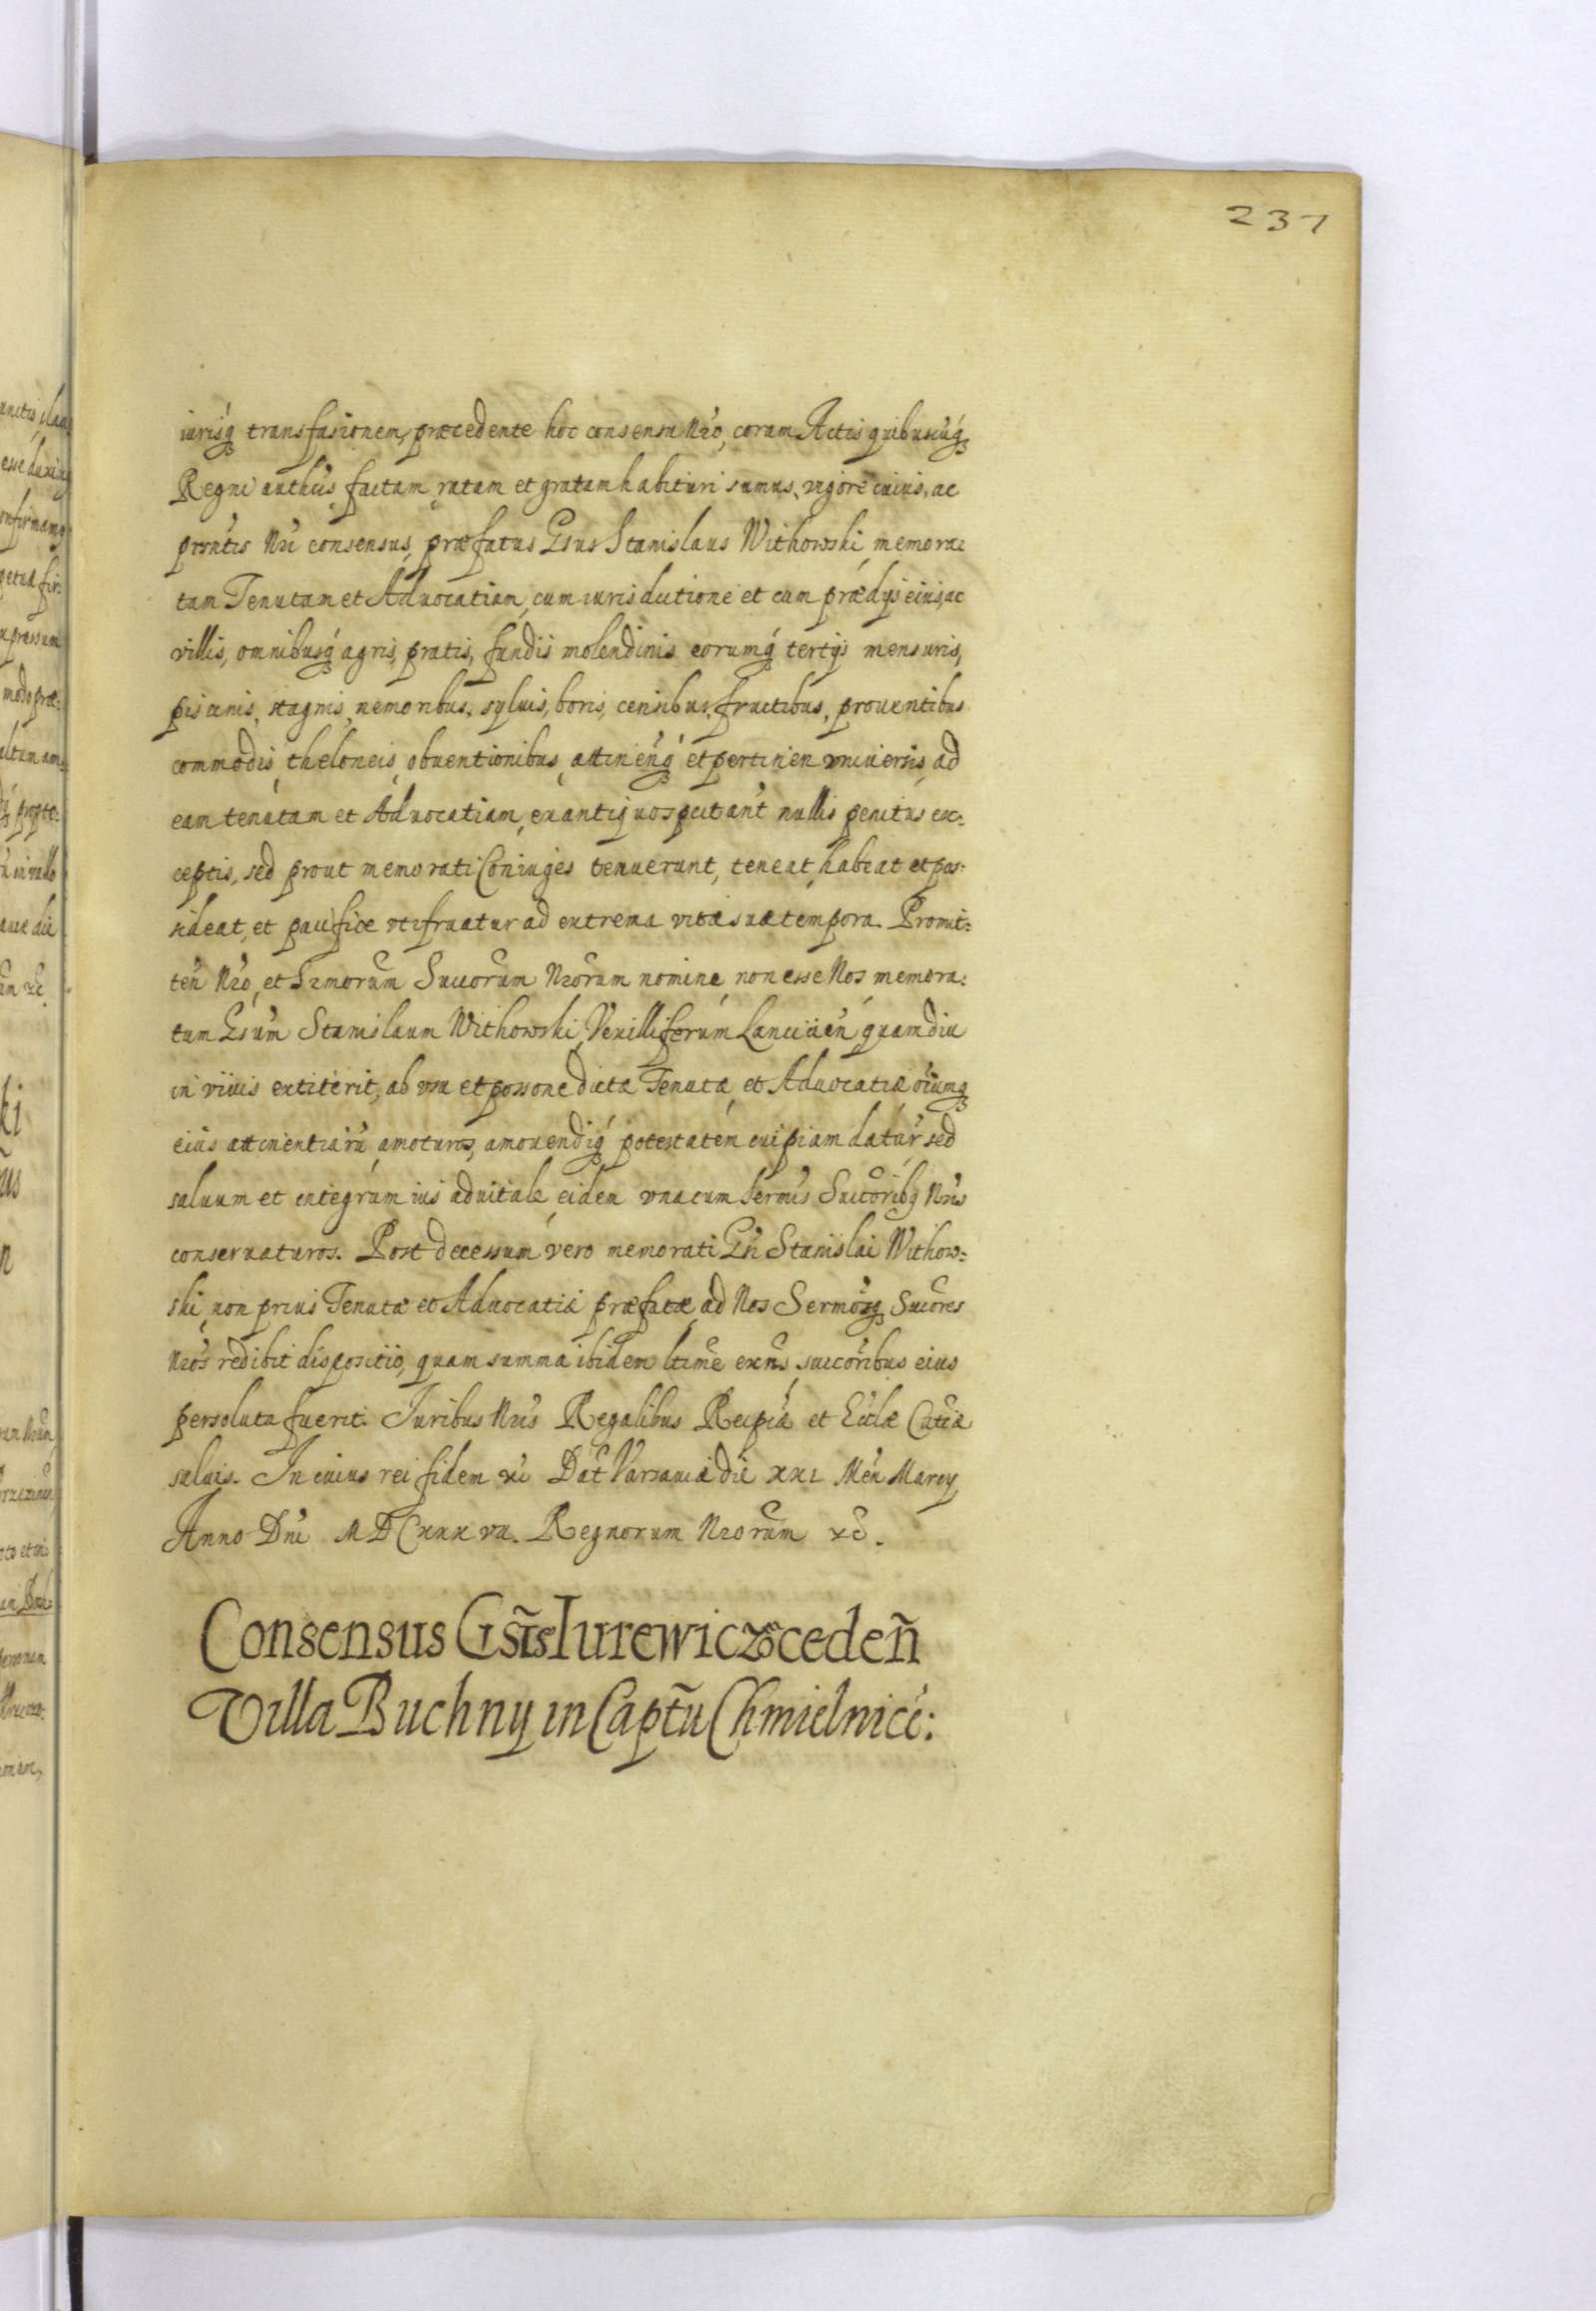 237
iurisq̃ transfusionem, præcedente hoc consensu Nr̃o, coram Actis quibuscũq̃
Regni authc̃is factam ratam et gratam habituri sumus, vigore cuius, ac
prñtis Nr̃i consensus, præfatus Gsus Stanislaus Withowski memora:
tam Tenutam et Advocatiam, cum iurisdictione et cum prædijs eius, ac
villis, omnibusq̃ agris, pratis, fundis molendinis eorumq̃ tertijs mensuris,
piscinis, stagnis, nemoribus, syluis, boris, censibus, fructibus, prouentibus
commodis, theloneis, obuentionibus, attineñq̃ et pertineñ vniuersis, ad
eam tenutam et Aduocatiam, ex antiquo spectanť nullis penitus ex:
ceptis, sed prout memorati Coniuges tenuerunt, teneat, habeat et pos:
sideat, et pacifice vtifruatur ad extrema vitæ suæ tempora. Promit:
teñ Nr̃o, et Srmorum Succrum Nr̃orum nomine, non esse Nos memora:
tum Gsum Stanislaum Withowski, Vexilliferum Lanciciẽn, quamdiu
in viuis extiterit, ab vsu et possone dictæ Tenutæ, et Aduocatiæ oĩumq̃
eius attinentiarũ, amoturos, amouendiq̃ potestatem cuipiam daturʼ sed
saluum et integrum ius aduitale, eidem vnacum Sermis Succoribq̃ Nr̃is
conseruaturos. Post decessum vero memorati Gñ Stanislai Withow:
ski, non prius Tenutæ et Aduocatiæ præfatæ, ad Nos Sermosq̃ Succores
Nr̃os redibit dispositio, quam summa ibidem ltime exñs, succoribus eius
persoluta fuerit. Juribus Nr̃is Regalibus Reipcæ et Ecclæ Catcæ
saluis. In cuius rei fidem &c̃ Dat̃ Varsauiæ die XXI Meñ Marcij
Anno Dñi MDCXXXVII. Regnorum Nr̃orum &c̃.
Consensus Gs̃is Iurewiczõ cedeñ
Villa Buchny in Captũ Chmielnicẽ: